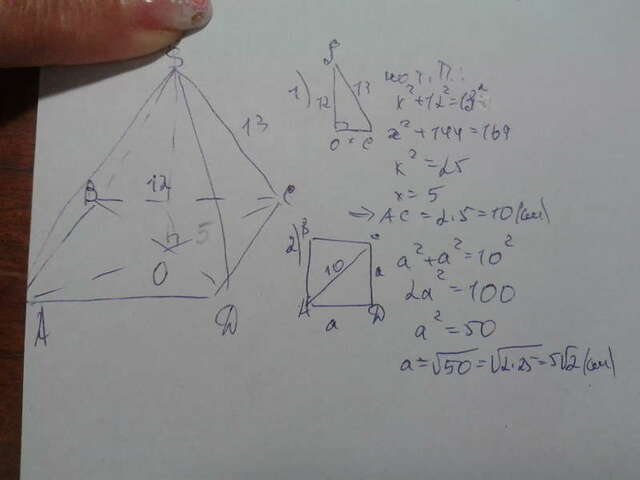 S
13
B
12
C
5
O
A
D
1)
S
12
13
O x C
по т. П.:
x² + 12² = 13²
x² + 144 = 169
x² = 25
x = 5
=> AC = 2·5 = 10 (см)
2)
B
C
10
a
A
D
a
a² + a² = 10²
2a² = 100
a² = 50
a = √50 = √2·25 = 5√2 (см)